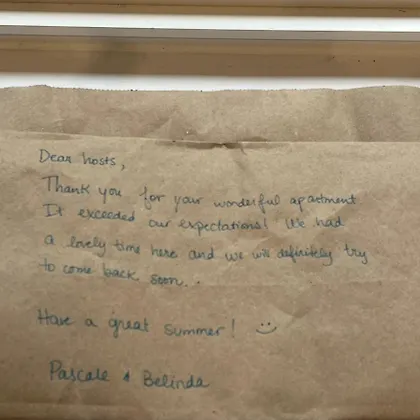 Dear hosts,
Thank you for your wonderful apartment
It exceeded our expectations! We had
a lovely time here and we will definitely try
to come back soon..
Have a great summer! :)
Pascale & Belinda